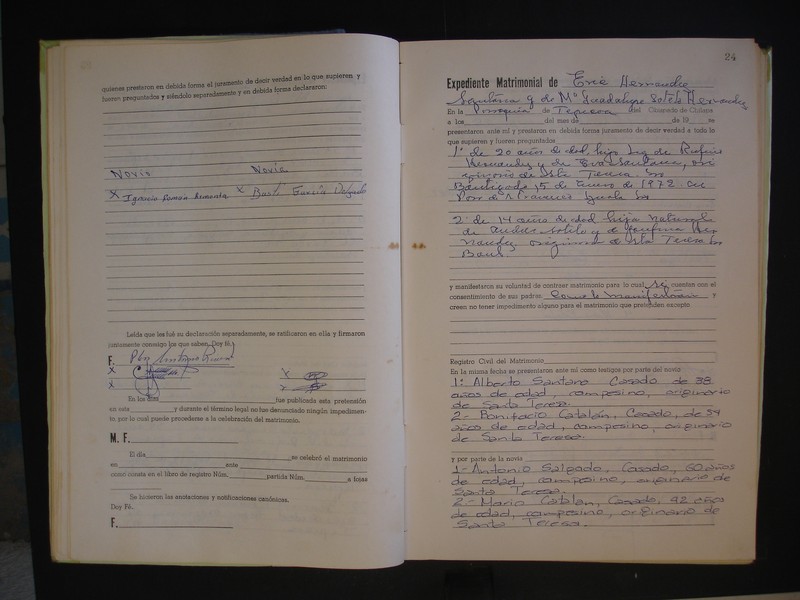 quienes prestaron en debida forma el juramento de decir verdad en lo que supieren y
fueren preguntados y siéndolo separadamente y en debida forma declararon:
Novio Novia
X Ignacio Román Armenta X García Delgado
Leída que les fué su declaración separadamente, se ratificaron en ella y firmaron
juntamente conmigo los que saben. Doy fé.
F.
X X
X X
En los días fue publicada esta pretensión
en esta y durante el término legal no fue denunciado ningún impedimen-
to por lo cual puede procederse a la celebración del matrimonio.
M. F.
El día se celebró el matrimonio
en ante
como consta en el libro de registro Núm. partida Núm. a fojas
Se hicieron las anotaciones y notificaciones canónicas.
Doy Fé.
F.
24
Expediente Matrimonial de
y de Mª Guadalupe Sotelo Hernandez
En la Parroquia de Tepecoa del Obispado de Chilapa
a los del mes de de 19 se
presentaron ante mí y prestaron en debida forma juramento de decir verdad a todo lo
que supieren y fueren preguntados
1º de 20 años de edad, hijo de
Hernandez y de Santana, ori
de Sta Teresa
Bautizado 15 de Enero de 1972 en
Iguala
2º de 14 años de edad hija natural
de Sotelo y de Her
nandez, originaria de Sta Teresa
y manifestaron su voluntad de contraer matrimonio para lo cual si cuentan con el
consentimiento de sus padres como lo manifestaron y
creen no tener impedimento alguno para el matrimonio que pretenden excepto
Registro Civil del Matrimonio
En la misma fecha se presentaron ante mí como testigos por parte del novio
1: Alberto Santana Casado de 38
años de edad, campesino, originario
de Santa Teresa.
2- Bonifacio Catalán, Casado, de 54
años de edad, campesino, originario
de Santa Teresa.
y por parte de la novia
1- Antonio Salgado, Casado, 60 años
de edad, campesino, originario de
Santa Teresa.
2- Mario Catalán, Casado, 42 años
de edad, campesino, originario de
Santa Teresa.